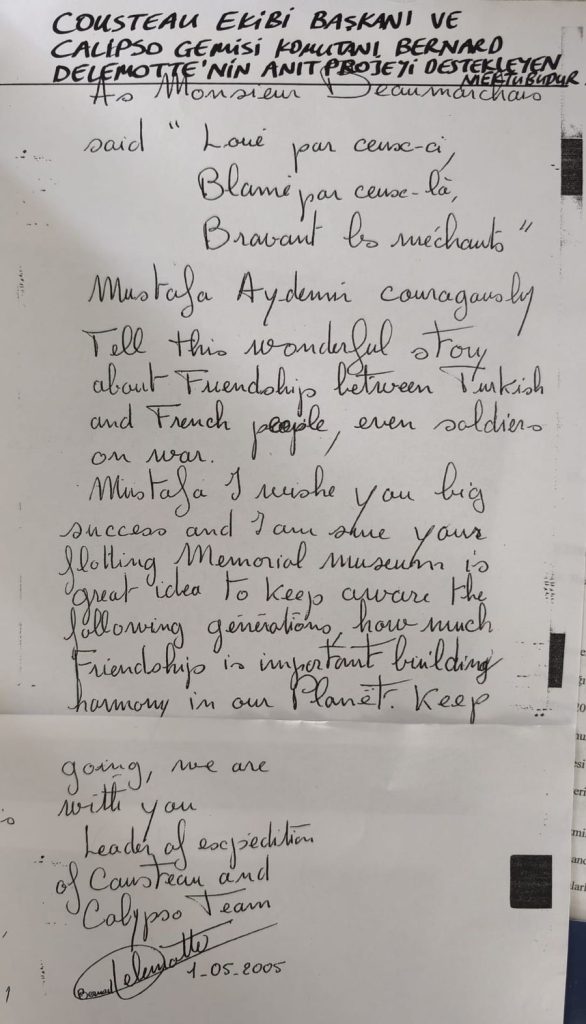 COUSTEAU EKİBİ BAŞKANI VE
CALIPSO GEMİSİ KOMUTANI BERNARD
DELEMOTTE'NİN ANIT PROJEYİ DESTEKLEYEN
MEKTUBUDUR.
As Monsieur Beaumarchais
said " Loué par ceux-ci,
Blamé par ceux-là,
Bravant les méchants "
Mustafa Aydemir couragously
Tell this wonderful story
about Friendship between Turkish
and French people, even soldiers
on war.
Mustafa I wishe you big
success and I am sure your
flotting Memorial museum is
great idea to keep aware the
following générations, how much
Friendship is important building
harmony in our Planet. Keep
going, we are
with you
Leader of expédition
of Cousteau and
Calypso Team
Bernard Delemotte
1-05-2005